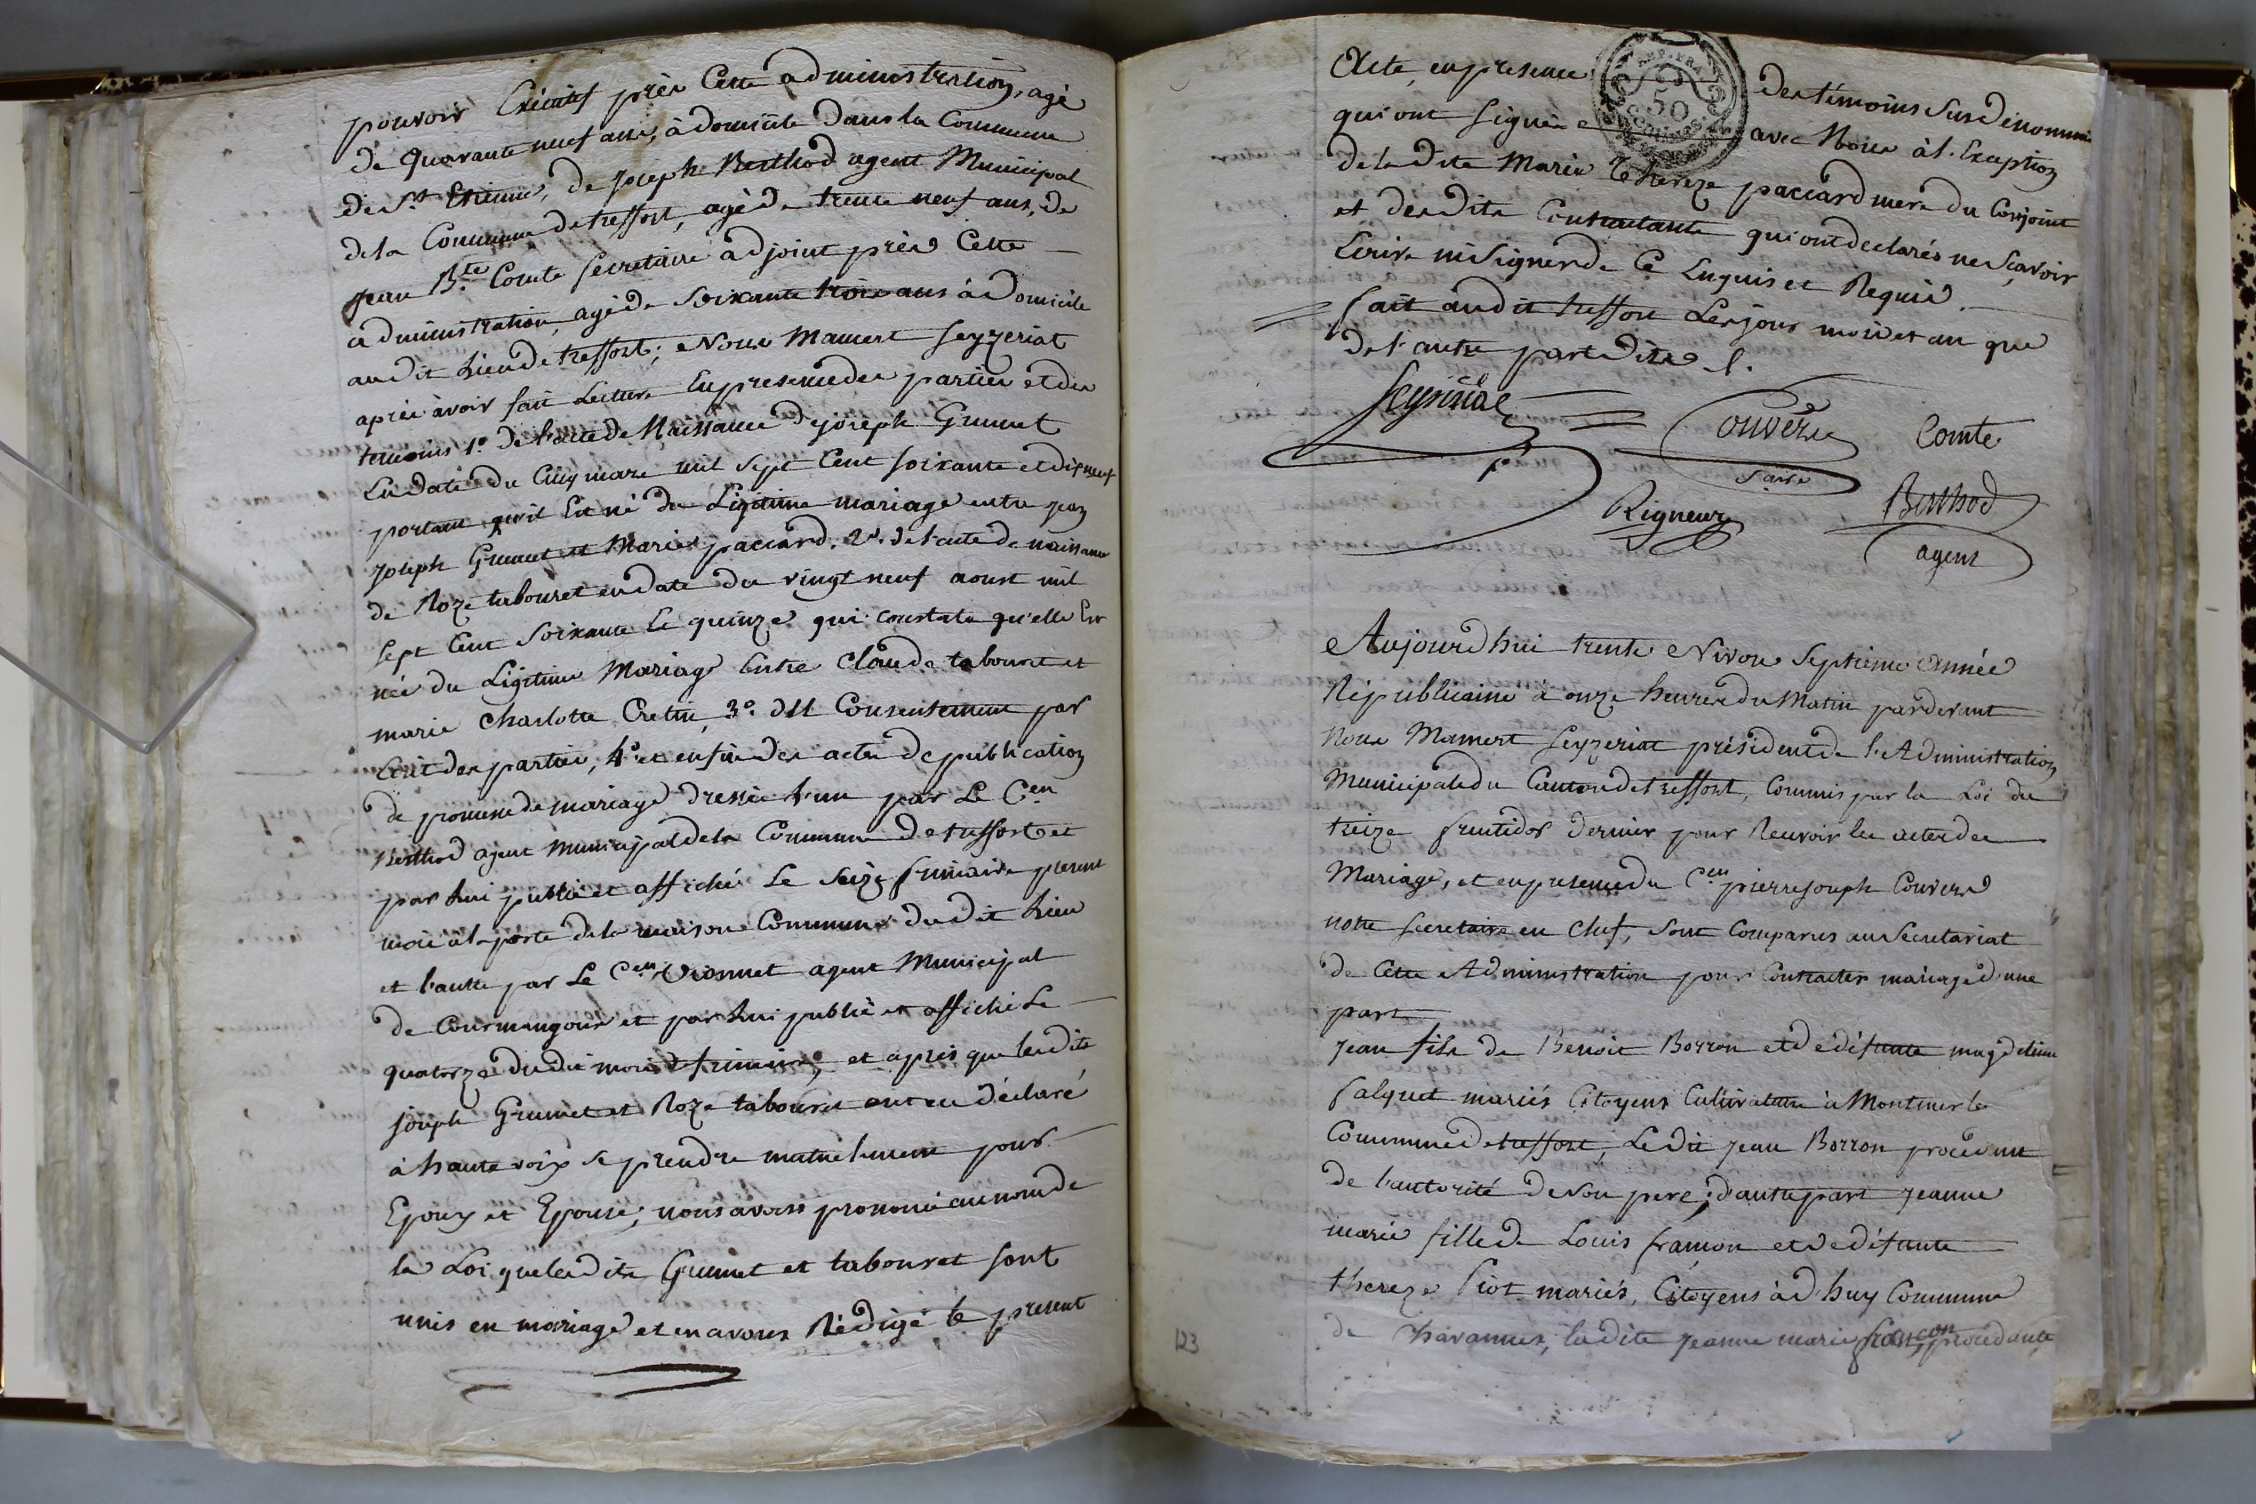 pouvoir Executif près Cette administration, agé
de quarante neuf ans, à domicile dans la Commune
de St. Etienne, de joseph Berthod agent Municipal
de la Commune de treffort, agé de trente neuf ans, de
jean Bte. Comte secretaire adjoint près Cette
administration, agé de soixante trois ans à Domicile
audit Lieu de treffort; Nous Mamert seyzeriat
après avoir fait Lecture En presence des parties et des
temoins 1o. de l'acte de Naissance de joseph Grumet
En date du Cinq mars mil sept Cent soixante et dix neuf
portant qu'il Est né du Légitime mariage entre jean
joseph Grumet et Marie paccard. 2o. de l'acte de naissance
de Roze tabouret en date du vingt neuf aoust mil
sept Cent soixante et quinze qui constate qu'elle Est
née du Légitime Mariage Entre Claude tabouret et
marie Charlotte Cretin, 3o. du Consentement par
Ecrit des parties, 4o. et enfin des actes de publication
de promesse de mariage dressés l'un par Le Cen
Berthod agent Municipal de la Commune de treffort et
par Lui publié et affiché Le seize frimaire present
mois à la porte de la maison Commune du dit Lieu
et l'autre par Le Cen. Vionnet agent Municipal
de Courmangoux et par Lui publié et affiché Le
quatorze dudit mois de frimaire, et après que lesdits
joseph Grumet et Roze tabouret ont eu déclaré
à haute voix se prendre mutuelement pour
Epoux et Epouse, nous avons prononcé au nom de
la Loi que lesdits Grumet et tabouret sont
unis en mariage et en avons Rédigé le present
Acte, en presence des témoins susdénommés
qui ont signés avec Nous à l'Exception
de la Dite Marie Thereze paccard mere du Conjoint
et desdits Contractants qui ont declarés ne sçavoir
Ecrire ni signer de Ce Enquis et Requis.
fait audit treffort Les jour mois et an que
de l'autre part Dits.
REP. FRA.
50
CENTIMES
Comte
Couvere
Saire
Rigneux
Berthod
agent
Aujourd'hui trente Nivose septieme Année
Républicaine à onze heures du Matin pardevant
Nous Mamert seyzeriat président de l'Administration
Municipale du Canton de treffort, Commis par la Loi du
treize fructidor dernier pour Recevoir les actes de
Mariage, et en presence du Cen. pierre joseph Couvere
notre secretaire en Chef, sont Comparus au Secretariat
de Cette Administration pour Contracter mariage d'une
part
jean fils de Benoit Borron et de défunte magdeleine
falquet mariés Citoyens Cultivateurs à Montmerle
Commune de treffort, Ledit jean Borron procédant
de l'autorité de son pere; d'autre part jeanne
marie fille de Louis françon et de défunte
thereze Piot mariés, Citoyens à d'huy Commune
de Chavannes, ladite jeanne marie françon procedante
123